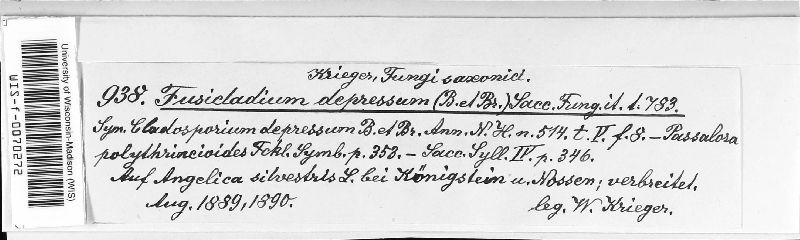 University of Wisconsin-Madison (WIS)
WIS-f-0070272
Krieger, Fungi saxonici.
938. Fusicladium depressum (B. et Br.) Sacc. Fung. it. t. 783.
Syn. Cladosporium depressum B. et Br. Ann. N. H. n. 514. t. V. f. 8. – Passalora
polythrincioides Fckl. Symb. p. 353. – Sacc. Syll. IV. p. 346.
Auf Angelica silvestris L. bei Königstein u. Nossen; verbreitet.
Aug. 1889, 1890. leg. W. Krieger.